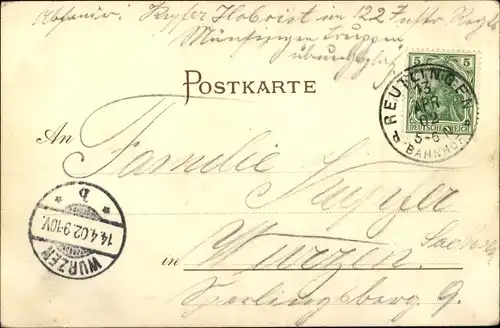 Absender: Kupfer Hoboist im 122 Inftr. Regt
Münsingen Truppen
übungsplatz
POSTKARTE
5 5
DEUTSCHES REICH
REUTLINGEN
13
APR
02
5-6 N
BAHNHOF
An Familie Kupfer
WURZEN
14.4.02.9-10V.
b
in Wurzen, Sachsen
Sperlingsberg 9.